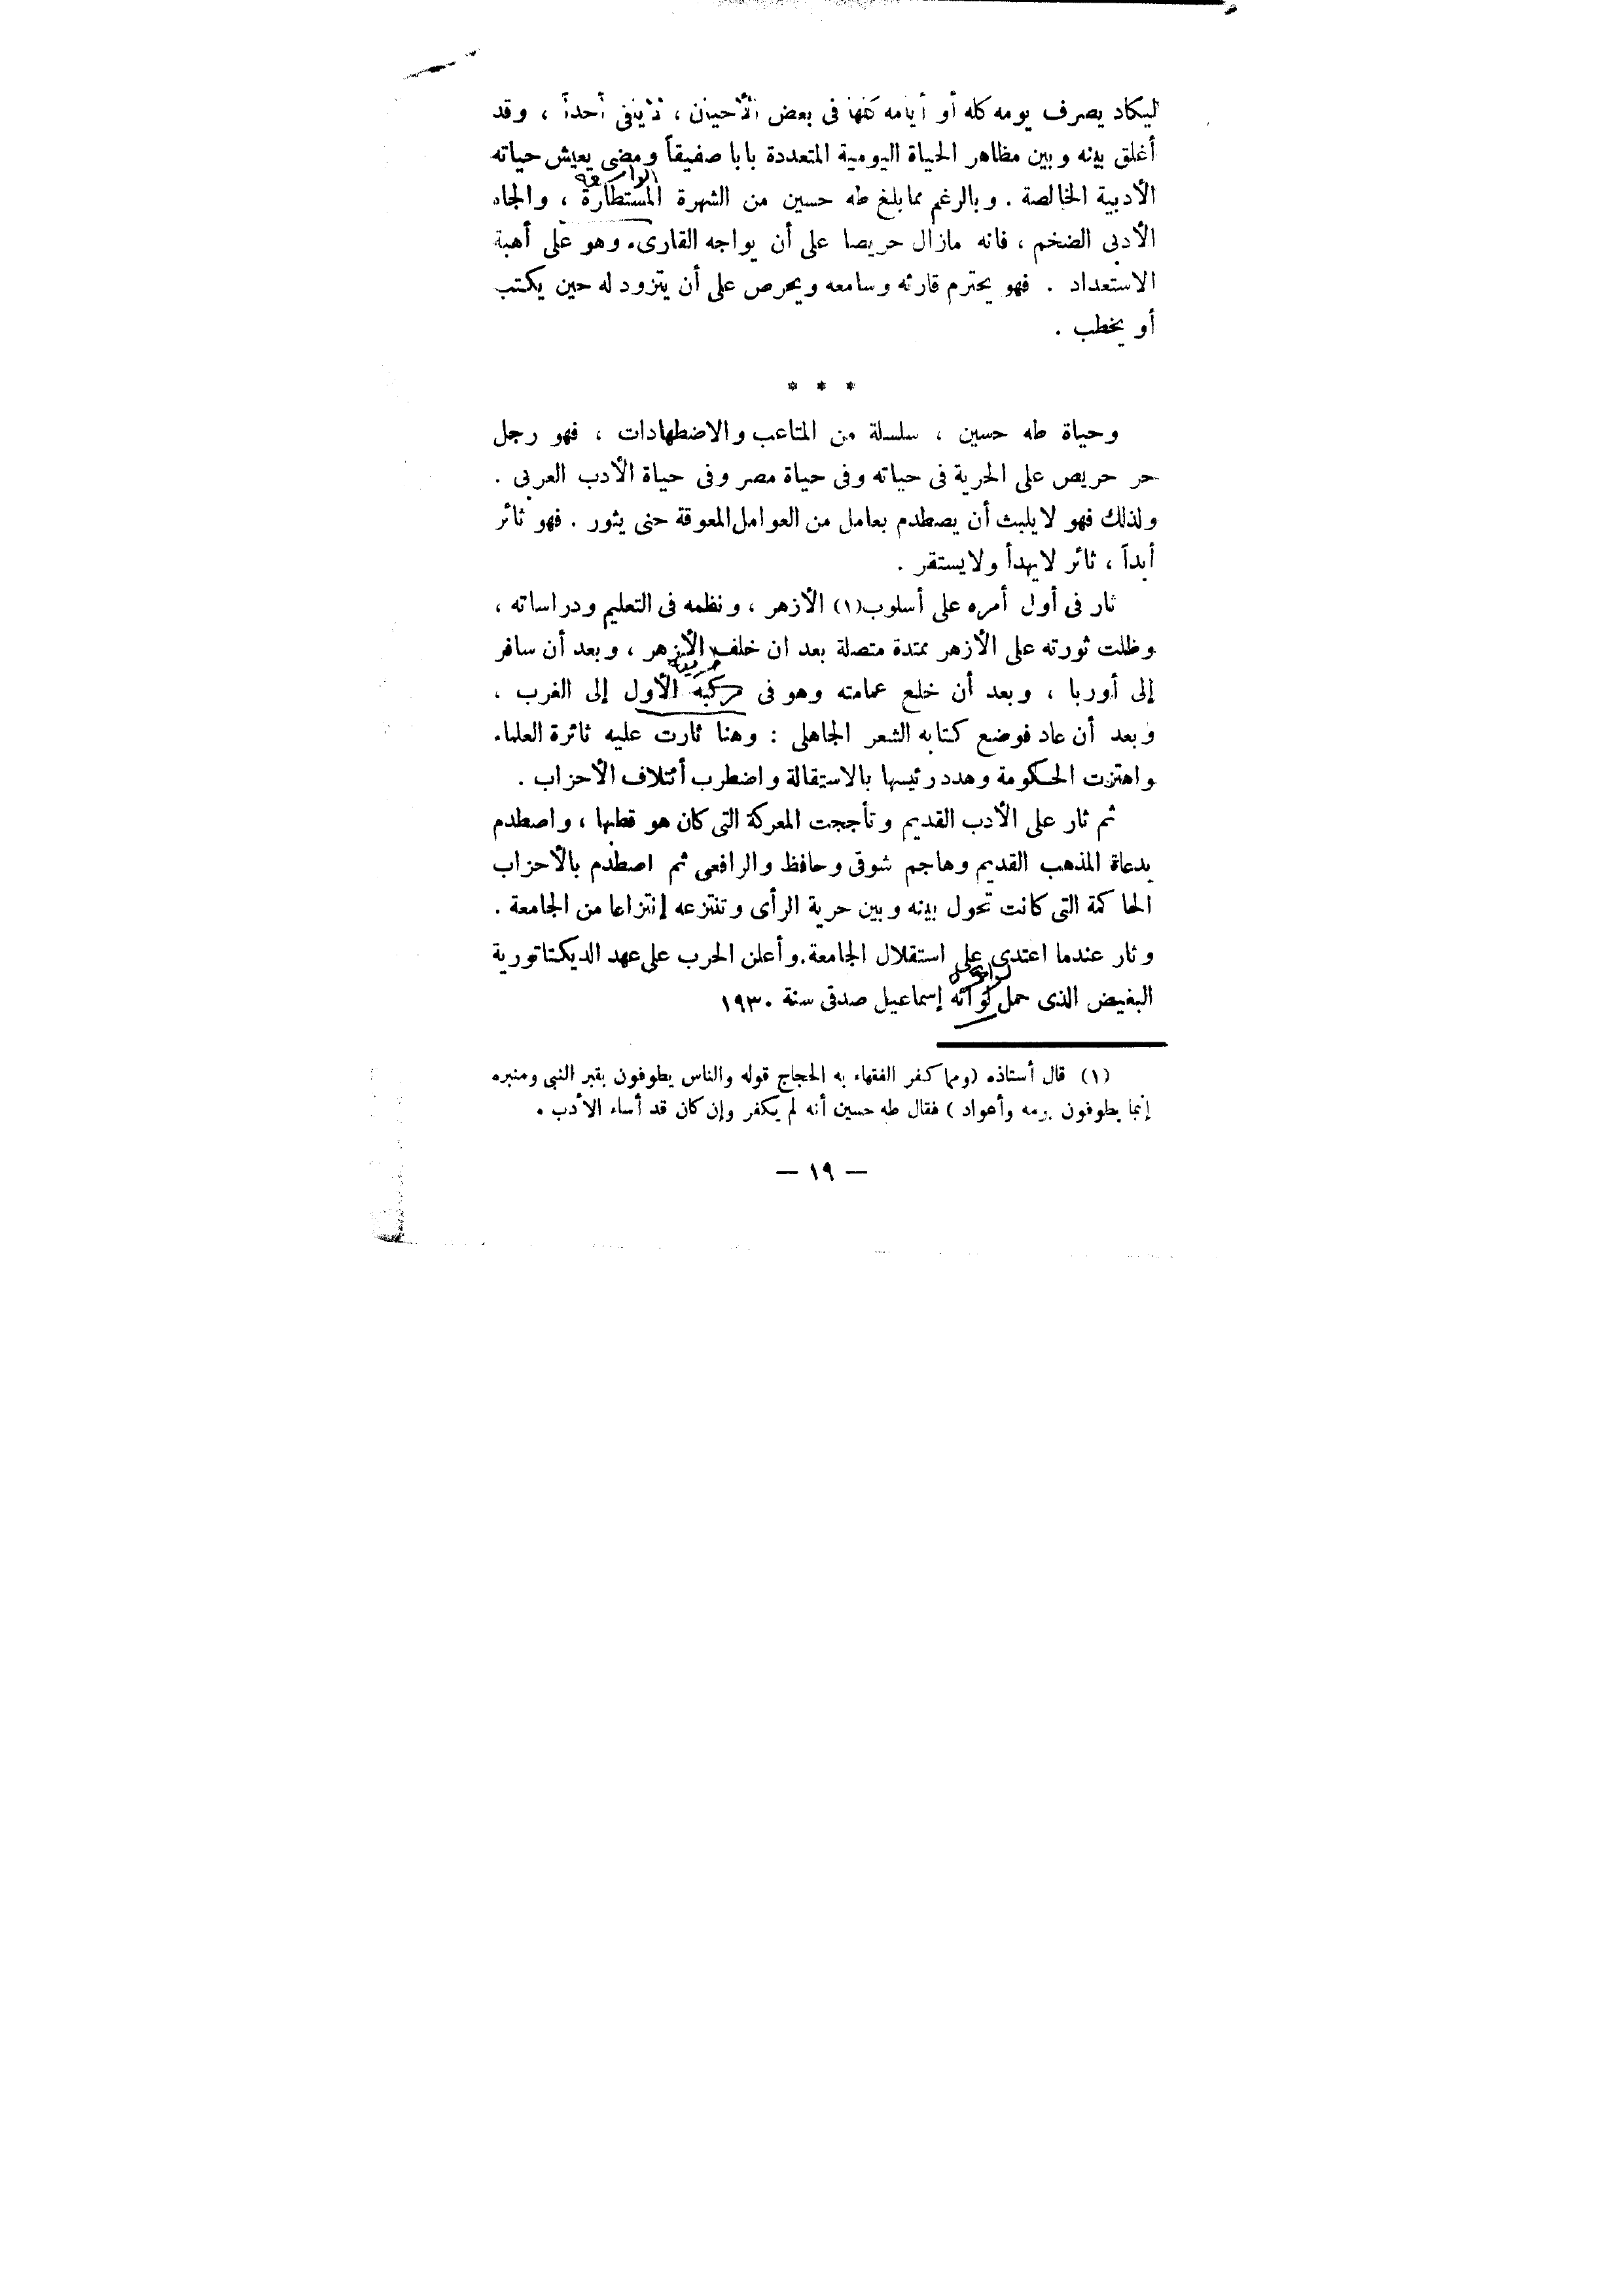 ليكاد يصرف يومه كله أو أيامه كلها فى بعض الأحيان ، أحداً ، وقد
أغلق بينه وبين مظاهر الحياة اليومية المتعددة بابا صفيقاً ومضى يعيش حياته
الأدبية الخالصة . وبالرغم مما بلغ طه حسين من الشهرة المستطارة ، والجاه
الأدبى الضخم ، فانه مازال حريصا على أن يواجه القارىء وهو على أهبة
الاستعداد . فهو يحترم قارئه وسامعه ويحرص على أن يتزود له حين يكتب
أو يخطب .
* * *
وحياة طه حسين ، سلسلة من المتاعب والاضطهادات ، فهو رجل
حر حريص على الحرية فى حياته وفى حياة مصر وفى حياة الأدب العربى .
ولذلك فهو لايلبث أن يصطدم بعامل من العوامل المعوقة حتى يثور . فهو ثائر
أبداً ، ثائر لايهدأ ولايستقر .
ثار فى أول أمره على أسلوب(١) الأزهر ، ونظمه فى التعليم ودراساته ،
وظلت ثورته على الأزهر ممتدة متصلة بعد ان خلف الأزهر ، وبعد أن سافر
إلى أوربا ، وبعد أن خلع عمامته وهو فى مركبه الأول إلى الغرب .
وبعد أن عاد فوضع كتابه الشعر الجاهلى : وهنا ثارت عليه ثائرة العلماء
واهتزت الحكومة وهدد رئيسها بالاستقالة واضطرب أئتلاف الأحزاب .
ثم ثار على الأدب القديم وتأججت المعركة التى كان هو قطبها ، واصطدم
بدعاة المذهب القديم وهاجم شوقى وحافظ والرافعى ثم اصطدم بالأحزاب
الحاكمة التى كانت تحول بينه وبين حرية الرأى وتنتزعه إنتزاعا من الجامعة .
وثار عندما اعتدى على استقلال الجامعة. وأعلن الحرب على عهد الديكتاتورية
البغيض الذى حمل لوائه إسماعيل صدقى سنة ١٩٣٠
(١) قال أستاذه (ومما كفر الفقهاء به الحجاج قوله والناس يطوفون بقبر النبى ومنبره
إنما يطوفون برمه وأعواد ) فقال طه حسين أنه لم يكفر وإن كان قد أساء الأدب .
— ١٩ —